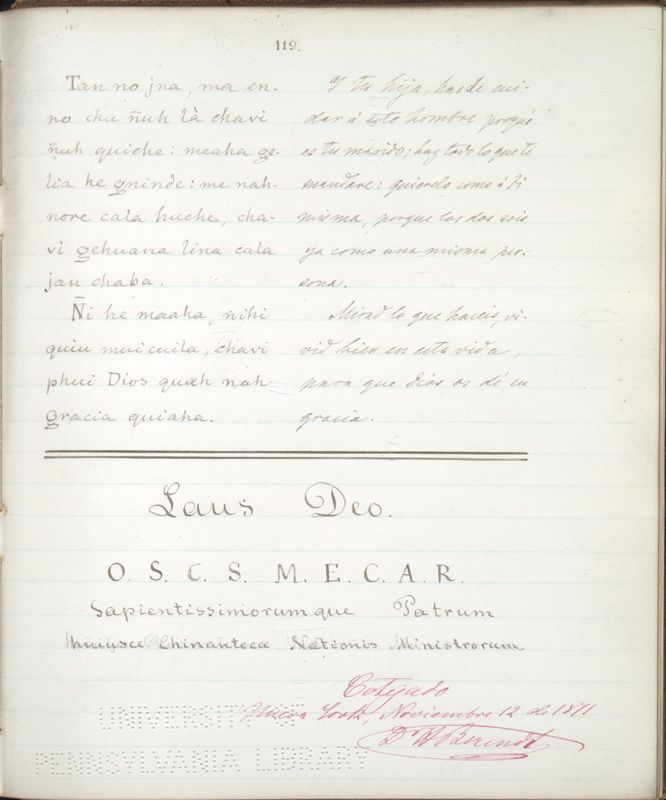 119.
Tan no jna, ma en-
no cha ñuh là chavi
ñuh quiche: meaha ge-
lia he gninde: me nah-
nore cala huehe, cha-
vi gehuana lina cala
jan chaba.
Ñi he maaha, ñihi
quiu muicuila, chavi
phui Dios quæh nah
gracia quiaha.
Y tu hija, has de cui-
dar á este hombre porqué
es tu marido; haz todo lo que te
mandare: quierelo como á ti
misma, porque los dos sois
ya como una misma per-
sona.
Mirad lo que haceis, vi-
vid bien en esta vida,
para que Dios os dé su
gracia.
Laus Deo.
O. S. C. S. M. E. C. A. R.
Sapientissimorum que Patrum
huiysce Chinanteca Nationis Ministrorum
Cotejado
Nueva York, Noviembre 12 de 1871
Dr H Berendt
UNIVERSITY OF
PENNSYLVANIA LIBRARY